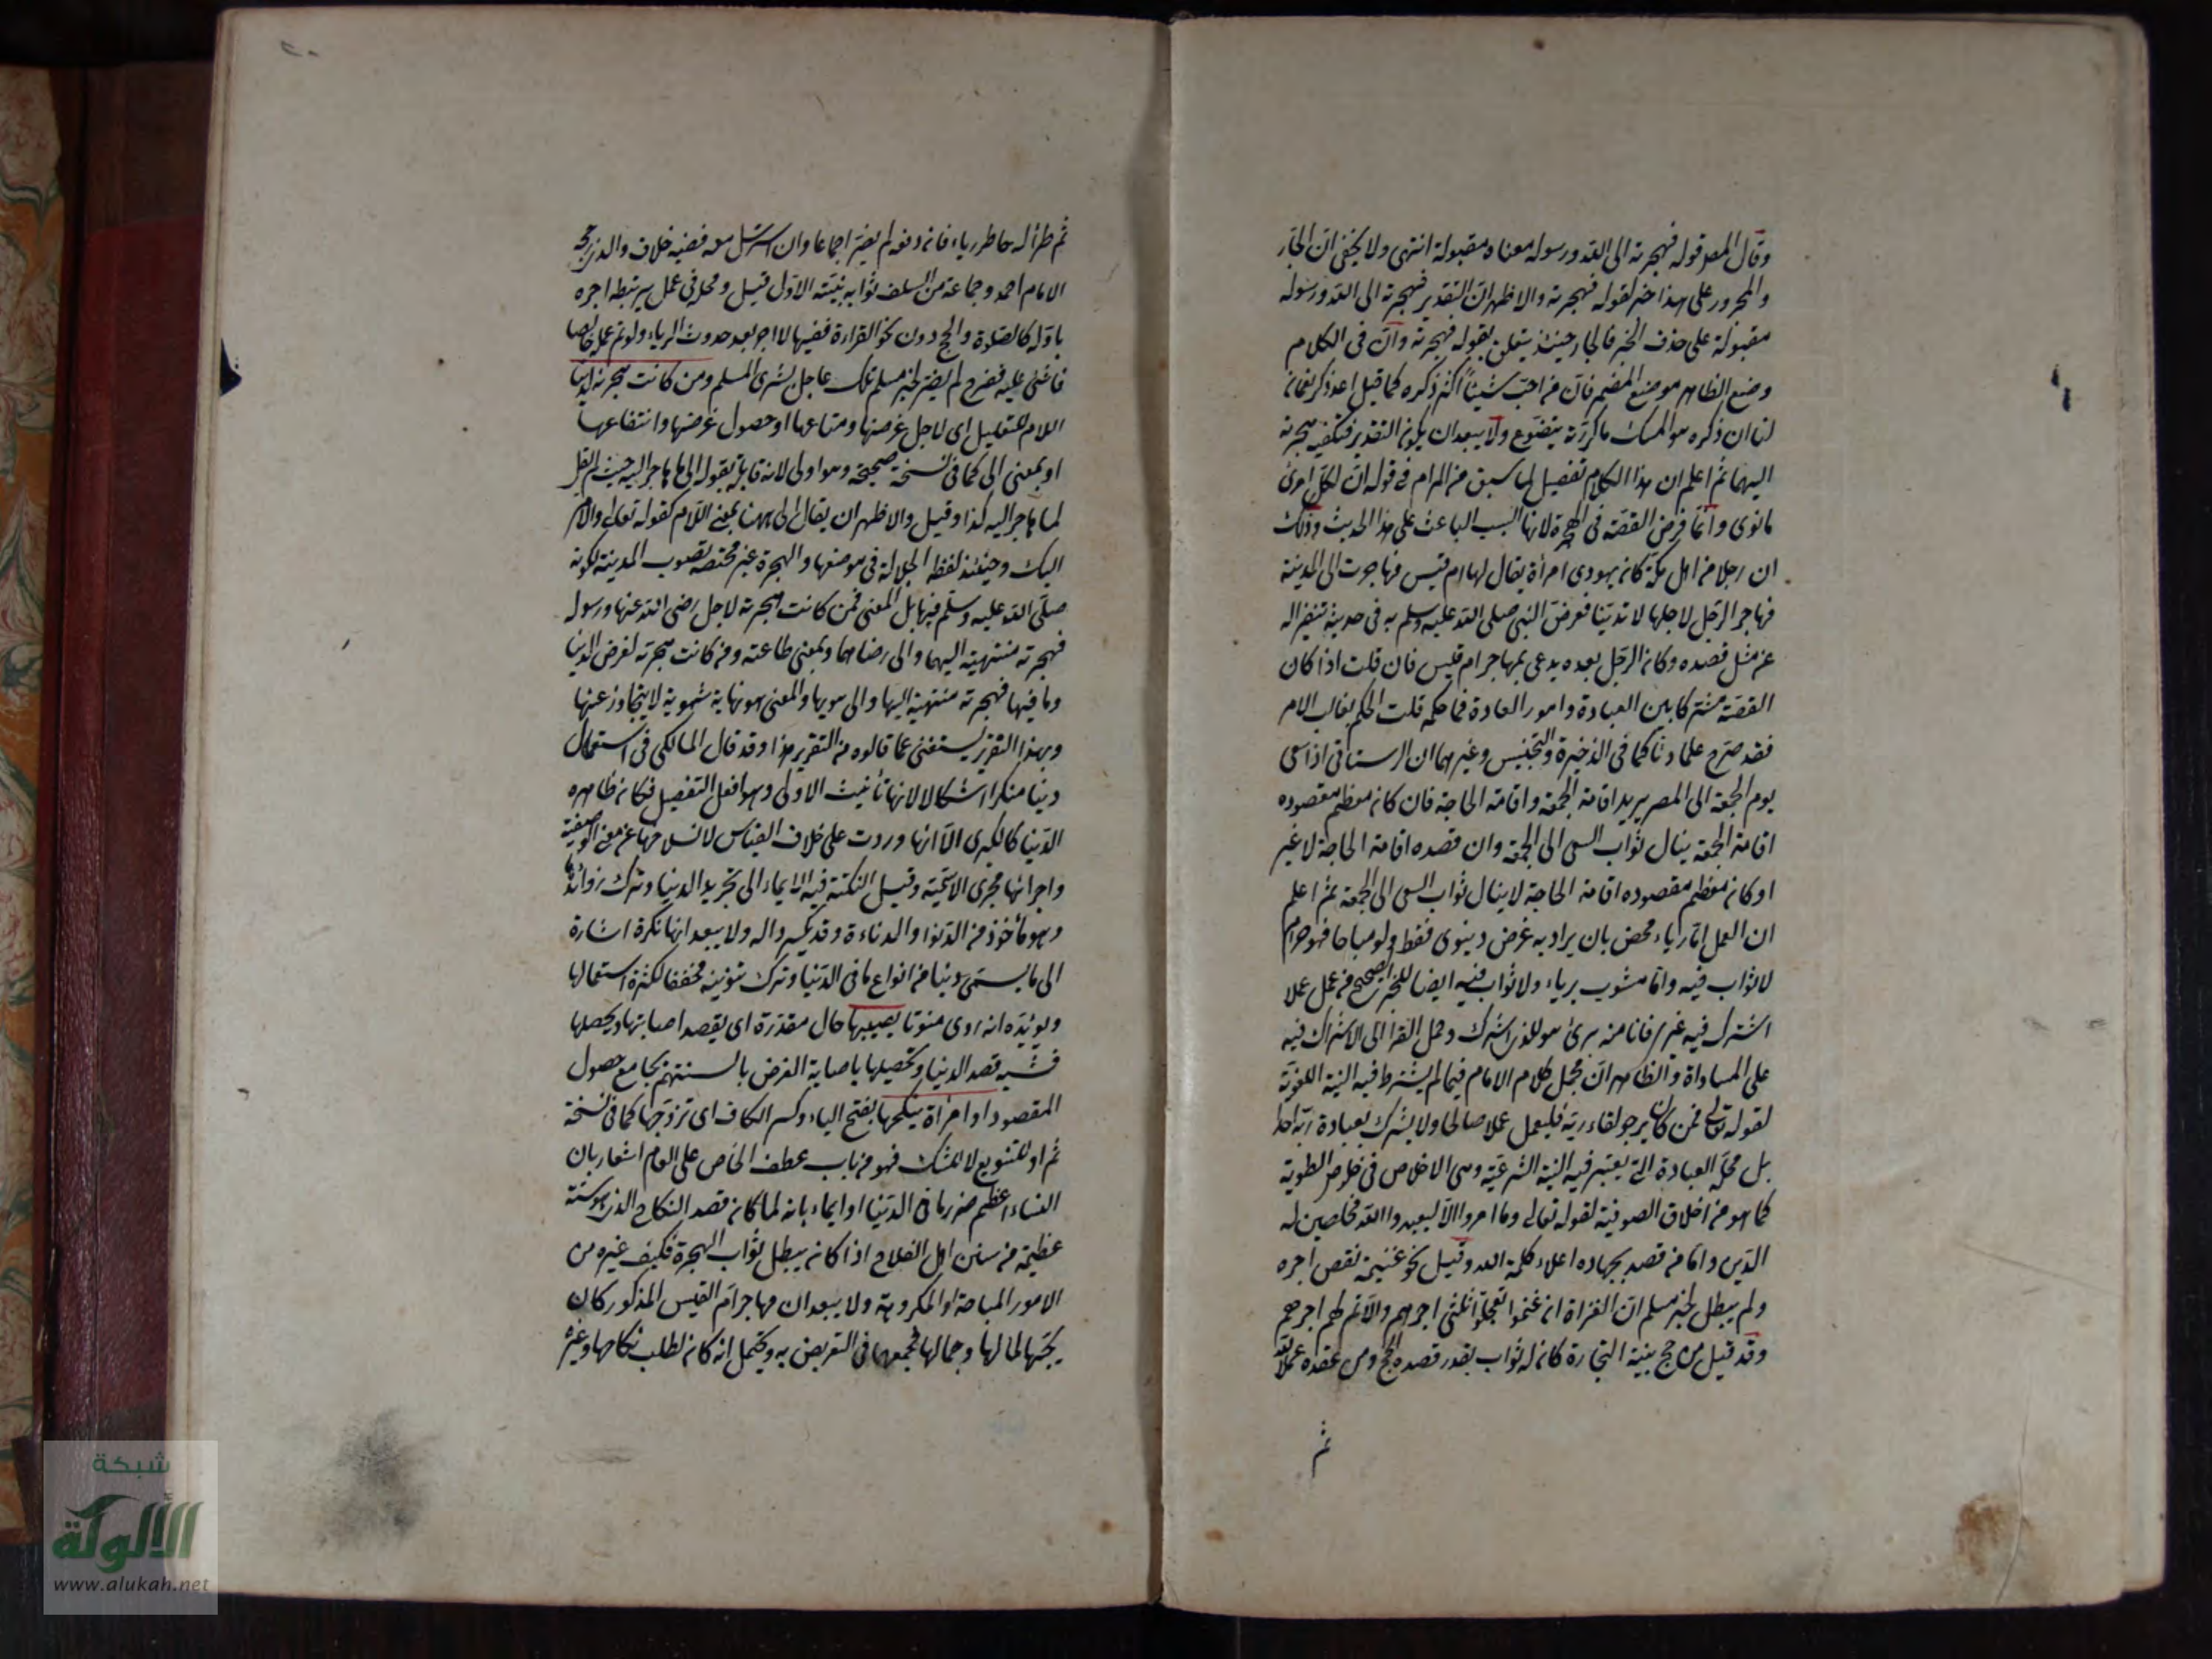 وقال المص قوله فهجرته الى الله ورسوله معناه مقبولة انتهى ولا يخفى ان الجار
والمجرور على هذا خبر لقوله فهجرته والاظهر ان التقدير فهجرته الى الله ورسوله
مقبولة على حذف الخبر فالجار حينئذ يتعلق بقوله فهجرته وان في الكلام
وضع الظاهر موضع المضمر فان من احب شيئا اكثر ذكره كما قيل اعد ذكر نعمان
لنا ان ذكره هو المسك ما كررته يتضوع ولا يبعد ان يكون التقدير فتكفيه هجرته
اليهما ثم اعلم ان هذا الكلام تفصيل لما سبق من المرام في قوله ان لكل امرئ
ما نوى وانما فرض القصة في الهجرة لانها السبب الباعث على هذا الحديث وذلك
ان رجلا من اهل مكة كان يهوى امرأة يقال لها ام قيس فهاجرت الى المدينة
فهاجر الرجل لاجلها لا تدينا فعرض النبي صلى الله عليه وسلم به في حديثه تنفيرا له
عن مثل قصده وكان الرجل بعده يدعى بمهاجر ام قيس فان قلت اذا كان
القصة مشتركا بين العبادة وامور العادة فما حكمه قلت الحكم لغالب الامر
فقد صرح علماؤنا كما في الذخيرة والتجنيس وغيرهما ان الرستاقي اذا سعى
يوم الجمعة الى المصر يريد اقامة الجمعة واقامة الحاجة فان كان معظم مقصوده
اقامة الجمعة ينال ثواب السعي الى الجمعة وان قصده اقامة الحاجة لا غير
او كان معظم مقصوده اقامة الحاجة لا ينال ثواب السعي الى الجمعة ثم اعلم
ان العمل اما رياء محض بان يراد به غرض دنيوي فقط ولو مباحا فهو حرام
لا ثواب فيه واما مشوب برياء ولا ثواب فيه ايضا للخبر الصحيح من عمل عملا
اشرك فيه غيري فانا منه برئ هو للذي اشرك وحمل الغزالي الاشراك فيه
على المساواة والظاهر ان محمل كلام الامام فيما لم يشترط فيه النية اللغوية
لقوله تعالى فمن كان يرجو لقاء ربه فليعمل عملا صالحا ولا يشرك بعبادة ربه احدا
بل محله العبادة التي يعتبر فيه النية الشرعية وهي الاخلاص في خلوص الطوية
كما هو من اخلاق الصوفية لقوله تعالى وما امروا الا ليعبدوا الله مخلصين له
الدين واما من قصد بجهاده اعلاء كلمة الله وقيل نحو غنيمة نقص اجره
ولم يبطل لخبر مسلم ان الغزاة ان غنموا تعجلوا ثلثي اجرهم والا تم لهم اجرهم
وقد قيل من حج بنية التجارة كان له ثواب بقدر قصده الحج ومن عقده عملا لله
ثم
ثم طرأ له خاطر رياء فان دفعه لم يضر اجماعا وان استرسل معه ففيه خلاف والذي رجح
الامام احمد وجماعة من السلف ثوابه بنيته الاول قيل ومحله في عمل يرتبط اجره
باوله كالصلوة والحج دون نحو القراءة ففيها لا اجر بعد حدوث الرياء ولو تم عمله خالصا
فاثني عليه ففرح لم يضر لخبر مسلم تلك عاجل بشرى المسلم ومن كانت هجرته لدنيا
اللام للتعليل اي لاجل غرضها ومتاعها او حصول غرضها وانتفاعها
او بمعنى الى كما في نسخة صحيحة وهو اولى لانه قابله بقوله الى ما هاجر اليه حيث لم يقل
لما هاجر اليه كذا وقيل والاظهر ان يقال الى ههنا بمعنى اللام كقوله تعالى والامر
اليك وحينئذ لفظ الجلالة في موضعها والهجرة غير مختصة بصوب المدينة لكونه
صلى الله عليه وسلم فيها بل المعنى فمن كانت هجرته لاجل رضى الله عنها ورسوله
فهجرته منتهية اليهما والى رضاهما وبمعنى طاعته ومن كانت هجرته لغرض الدنيا
وما فيها فهجرته منتهية اليها والى هويها والمعنى هو نهاية شهوية لا يتجاوز عنها
وبهذا التقرير يستغنى عما قالوه من التقرير هذا وقد قال المالكي في استعمال
دنيا منكرا اشكالا لانها تأنيث الاولى وهو افعل التفضيل فكان ظاهره
الدنيا كالكبرى الا انها وردت على خلاف القياس لانسلاخها عن معنى الوصفية
واجرائها مجرى الاسمية وقيل النكتة فيه الايماء الى تجريد الدنيا وترك زوائدها
وهو مأخوذ من الدنو او الدناءة وقد يكسر داله ولا يبعد انها نكرة اشارة
الى ما يسمى دنيا من انواع ما في الدنيا وترك تنوينه مخففا لكثرة استعمالها
ويؤيده انه روى منونا يصيبها حال مقدرة اي يقصد اصابتها وتحصيلها
فشبه قصد الدنيا وتحصيلها باصابة الغرض بالسهم بجامع حصول
المقصود او امرأة ينكحها بفتح الياء وكسر الكاف اي تزوجها كما في نسخة
ثم او للتنويع لا للشك فهو من باب عطف الخاص على العام اشعار بان
النساء اعظم ضررا في الدنيا او ايماء بانه لما كان قصد النكاح الذي هو سنة
عظيمة من سنن اهل الفلاح اذا كان يبطل ثواب الهجرة فكيف غيره من
الامور المباحة او المكروهة ولا يبعد ان مهاجر ام القيس المذكور كان
يحبها لمالها وجمالها فجمعها في التعريض به ويحتمل انه كان لطلب نكاحها وغيره
شبكة
الألوكة
www.alukah.net